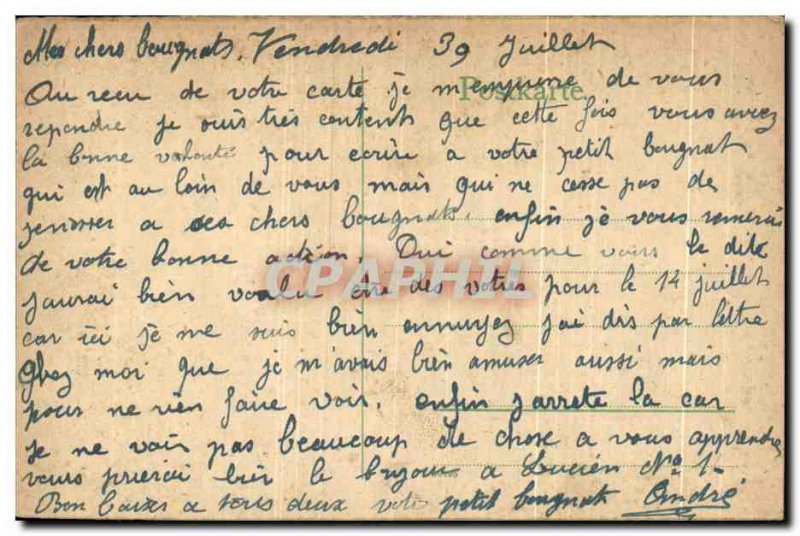 Mes chers bougnats, Vendredi 39 Juillet
Postkarte
Au recu de votre carte je m'empresse de vous
rependre je suis très contents que cette fois vous aviez
la bonne volonté pour ecrire a votre petit bougnat
qui est au loin de vous mais qui ne cesse pas de
penser a ses chers bougnats, enfin je vous remerci
de votre bonne action. Oui comme vous le dite
jaurai bien voulu etre des votres pour le 14 juillet
car ici je me suis bien ennuyez jai dis par lettre
chez moi que je m'avais bien amuser aussi mais
pour ne rien faire voir, enfin j'arrete la car
je ne voir pas beaucoup de chose a vous apprendre
vous prierai bien le bonjour a Lucien No 1-
Bon baiser a tous deux votre petit bougnat André
CPAPHIL